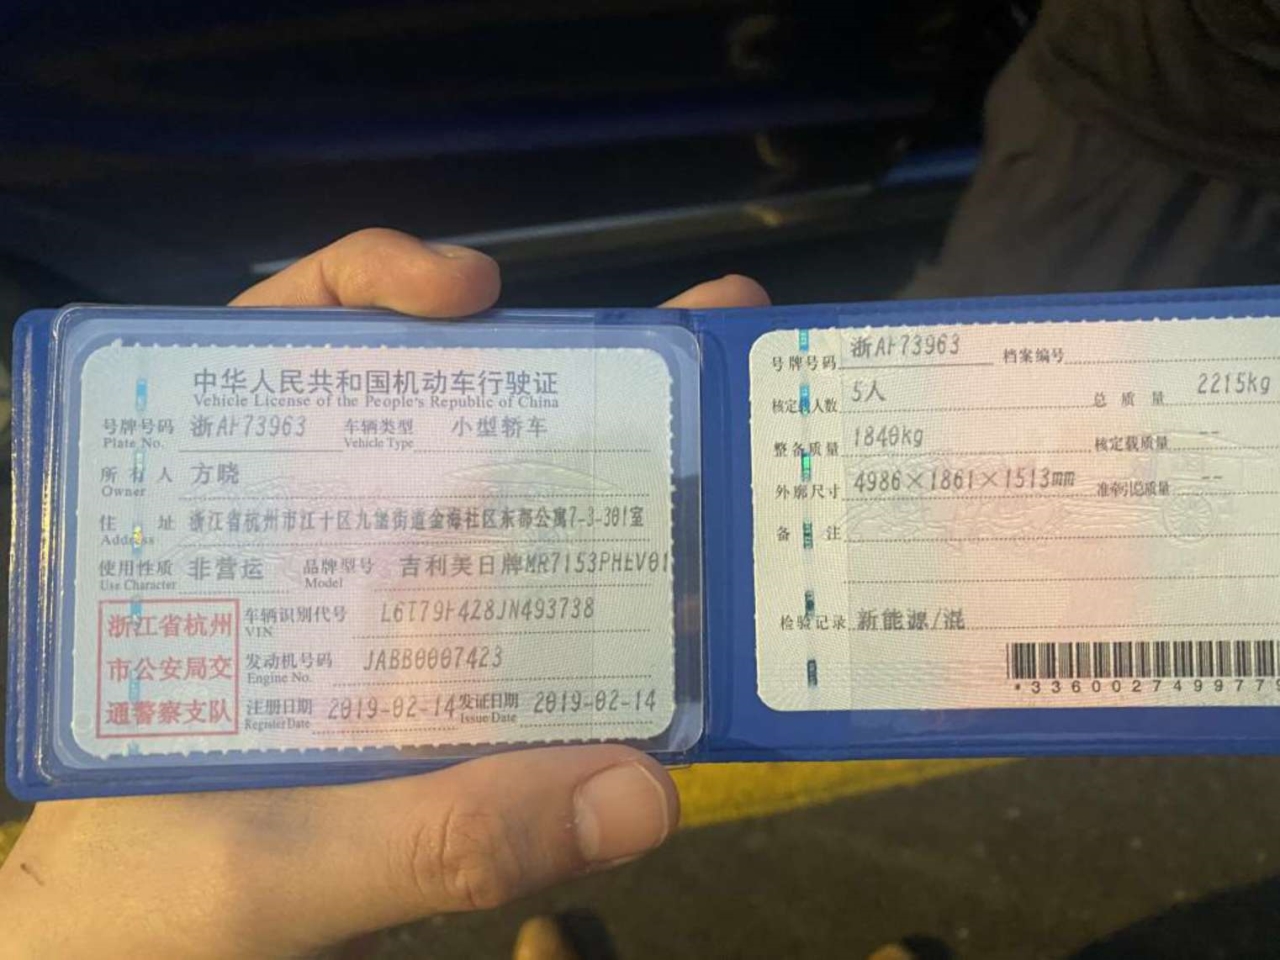 中华人民共和国机动车行驶证
Vehicle License of the People's Republic of China
号牌号码 浙AF73963 车辆类型 小型轿车
Plate No. Vehicle Type
所有人 方晓
Owner
住址 浙江省杭州市江干区九堡街道金海社区东都公寓7-3-301室
Address
使用性质 非营运 品牌型号 吉利美日牌MR7153PHEV01
Use Character Model
浙江省杭州
市公安局交
通警察支队
车辆识别代号 L6T79F4Z8JN493738
VIN
发动机号码 JABB0007423
Engine No.
注册日期 2019-02-14 发证日期 2019-02-14
Register Date Issue Date
号牌号码 浙AF73963 档案编号
核定载人数 5人 总质量 2215kg
整备质量 1840kg 核定载质量 --
外廓尺寸 4986×1861×1513mm 准牵引总质量 --
备注
检验记录 新能源/混
*3360027499779